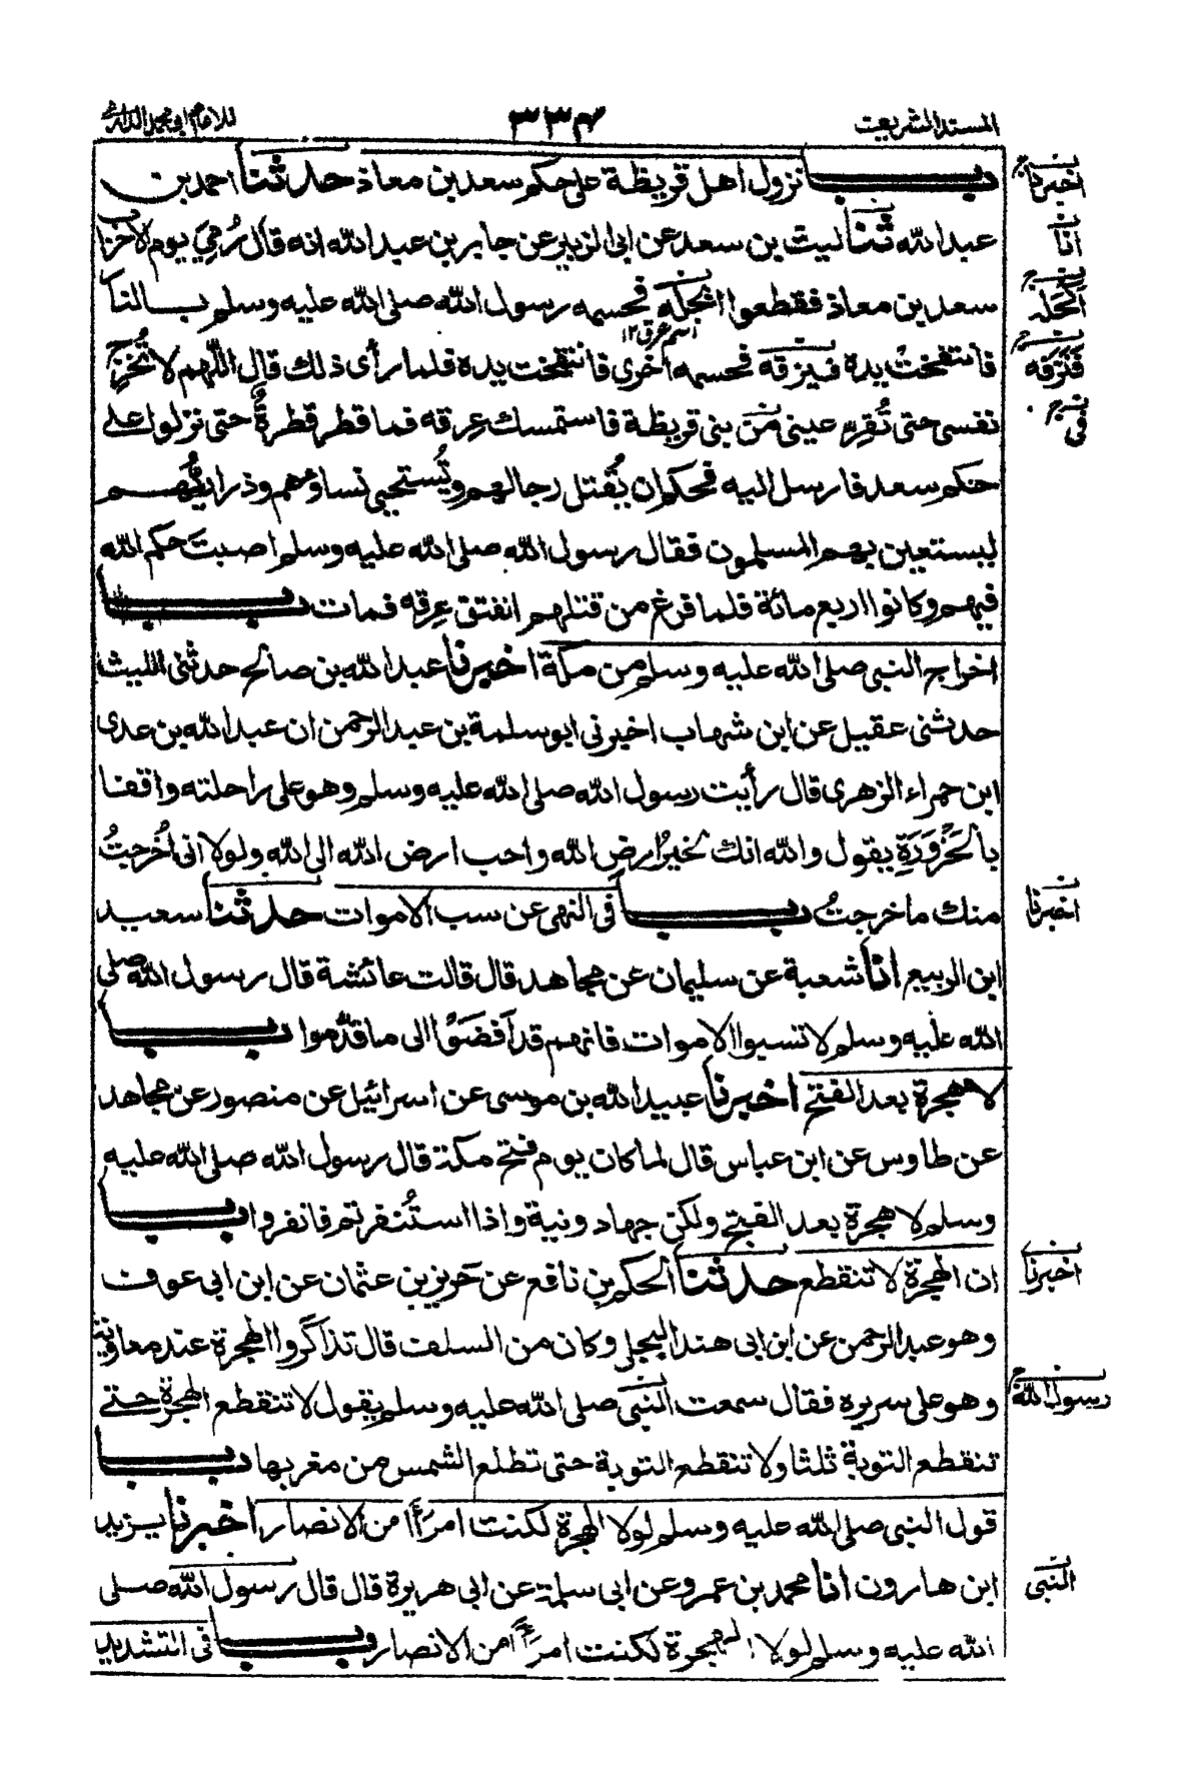 المسند الشريف
٣٣٣
للامام ابي محمد الدارمي
باب نزول اهل قريظة على حكم سعد بن معاذ حدثنا احمد بن
عبد الله ثنا ليث بن سعد عن ابى الزبير عن جابر بن عبد الله انه قال رُمِيَ يوم الاحزاب
سعد بن معاذ فقطعوا ابجله فحسمه رسول الله صلى الله عليه وسلم بالنار
اسم عرق ١٢
فانتفخت يده فنزفه فحسمه اخرى فانتفخت يده فلما رأى ذلك قال اللهم لا تُخرج
نفسى حتى تُقِرّ عينى من بنى قريظة فاستمسك عِرقه فما قطر قطرةٌ حتى نزلوا على
حكم سعد فارسل اليه فحكم ان يُقتل رجالهم وتُستحيى نساؤهم وذراريُّهم
ليستعين بهم المسلمون فقال رسول الله صلى الله عليه وسلم اصبتَ حكم الله
فيهم وكانوا اربع مائة فلما فرغ من قتلهم انفتق عِرقه فمات باب
اخراج النبى صلى الله عليه وسلم من مكة اخبرنا عبد الله بن صالح حدثنى الليث
حدثنى عقيل عن ابن شهاب اخبرنى ابو سلمة بن عبد الرحمن ان عبد الله بن عدى
ابن حمراء الزهرى قال رأيت رسول الله صلى الله عليه وسلم وهو على راحلته واقفا
بالحَزْوَرَةِ يقول والله انك لخيرُ ارض الله واحب ارض الله الى الله ولولا انى اُخرجتُ
منك ما خرجتُ باب فى النهى عن سب الاموات حدثنا سعيد
ابن الربيع انا شعبة عن سليمان عن مجاهد قال قالت عائشة قال رسول الله صلى
الله عليه وسلم لا تسبوا الاموات فانهم قد اَفضَوْا الى ما قدَّموا باب
لا هجرة بعد الفتح اخبرنا عبيد الله بن موسى عن اسرائيل عن منصور عن مجاهد
عن طاوس عن ابن عباس قال لما كان يوم فتح مكة قال رسول الله صلى الله عليه
وسلم لا هجرة بعد الفتح ولكن جهاد ونية واذا استُنفرتم فانفروا باب
ان الهجرة لا تنقطع حدثنا الحكم بن نافع عن حريز بن عثمان عن ابن ابى عوف
وهو عبد الرحمن عن ابن ابى هند البجلى وكان من السلف قال تذاكروا الهجرة عند معاوية
وهو على سريره فقال سمعت النبى صلى الله عليه وسلم يقول لا تنقطع الهجرة حتى
تنقطع التوبة ثلثا ولا تنقطع التوبة حتى تطلع الشمس من مغربها باب
قول النبى صلى الله عليه وسلم لولا الهجرة لكنت امرَأً من الانصار اخبرنا يزيد
ابن هارون انا محمد بن عمرو عن ابى سلمة عن ابى هريرة قال قال رسول الله صلى
الله عليه وسلم لولا الهجرة لكنت امرَأً من الانصار باب فى التشديد
اخبرنا
انا
اكحله
فنزفه
فى
اخبرنا
اخبرنا
رسول الله
النبى